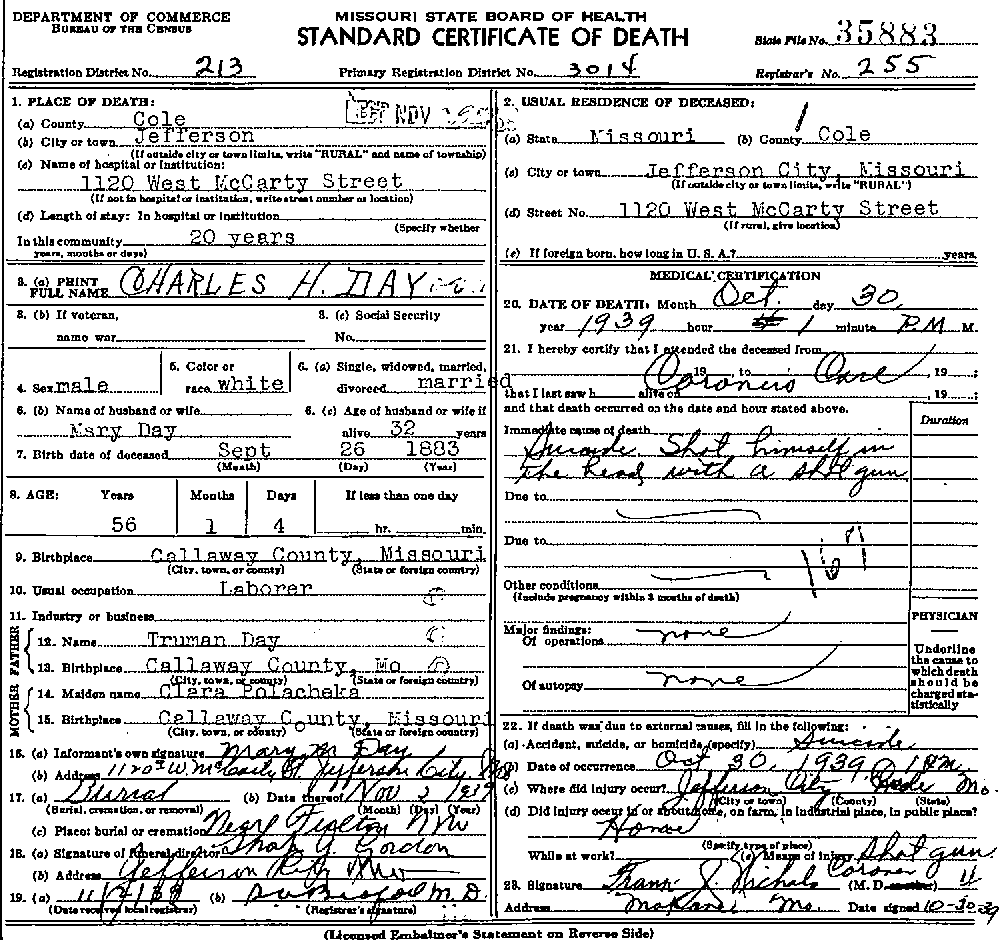 DEPARTMENT OF COMMERCE
BUREAU OF THE CENSUS
MISSOURI STATE BOARD OF HEALTH
STANDARD CERTIFICATE OF DEATH
State File No. 35883
Registration District No. 213
Primary Registration District No. 3014
Registrar's No. 255
1. PLACE OF DEATH:
(a) County Cole
(b) City or town Jefferson
(If outside city or town limits, write "RURAL" and name of township)
(c) Name of hospital or institution:
1120 West McCarty Street
(If not in hospital or institution, write street number or location)
(d) Length of stay: In hospital or institution
(Specify whether
In this community 20 years
years, months or days)
NOV
2. USUAL RESIDENCE OF DECEASED:
(a) State Missouri (b) County Cole
(c) City or town Jefferson City, Missouri
(If outside city or town limits, write "RURAL")
(d) Street No. 1120 West McCarty Street
(If rural, give location)
(e) If foreign born, how long in U. S. A.? years.
3. (a) PRINT FULL NAME CHARLES H. DAY
3. (b) If veteran, name war
3. (c) Social Security No.
4. Sex male
5. Color or race white
6. (a) Single, widowed, married, divorced married
6. (b) Name of husband or wife Mary Day
6. (c) Age of husband or wife if alive 32 years
7. Birth date of deceased Sept 26 1883
(Month) (Day) (Year)
8. AGE: Years Months Days If less than one day
56 1 4 hr. min.
9. Birthplace Callaway County, Missouri
(City, town, or county) (State or foreign country)
10. Usual occupation Laborer
11. Industry or business
FATHER
12. Name Truman Day
13. Birthplace Callaway County, Mo
(City, town, or county) (State or foreign country)
MOTHER
14. Maiden name Clara Polacheka
15. Birthplace Callaway County, Missouri
(City, town, or county) (State or foreign country)
16. (a) Informant's own signature Mary M Day
(b) Address 1120 W. McCarty St Jefferson City, Mo
17. (a) Burial (b) Date thereof Nov 2 1939
(Burial, cremation, or removal) (Month) (Day) (Year)
(c) Place: burial or cremation Near Fulton Mo
18. (a) Signature of funeral director Gordon
(b) Address Jefferson City Mo
19. (a) (b) M.D.
(Date received local registrar) (Registrar's signature)
MEDICAL CERTIFICATION
20. DATE OF DEATH: Month Oct. day 30
year 1939 hour 1 minute P.M M.
21. I hereby certify that I attended the deceased from
19 , to , 19 ;
Coroners Case
that I last saw h alive on , 19 ;
and that death occurred on the date and hour stated above.
Duration
Immediate cause of death
Suicide. Shot himself in
the head with a shot gun
Due to
Due to
Other conditions
(Include pregnancy within 3 months of death)
Major findings:
Of operations none
Of autopsy none
PHYSICIAN
Underline
the cause to
which death
should be
charged sta-
tistically
22. If death was due to external causes, fill in the following:
(a) Accident, suicide, or homicide (specify) Suicide
(b) Date of occurrence Oct 30, 1939
(c) Where did injury occur? Jefferson City Mo.
(City or town) (County) (State)
(d) Did injury occur in or about home, on farm, in industrial place, in public place?
Home
(Specify type of place)
While at work? (e) Means of injury Shot gun
23. Signature Frank J. Nichols Coroner (M. D. or other)
Address Mokane Mo. Date signed 10-30-39
(Licensed Embalmer's Statement on Reverse Side)